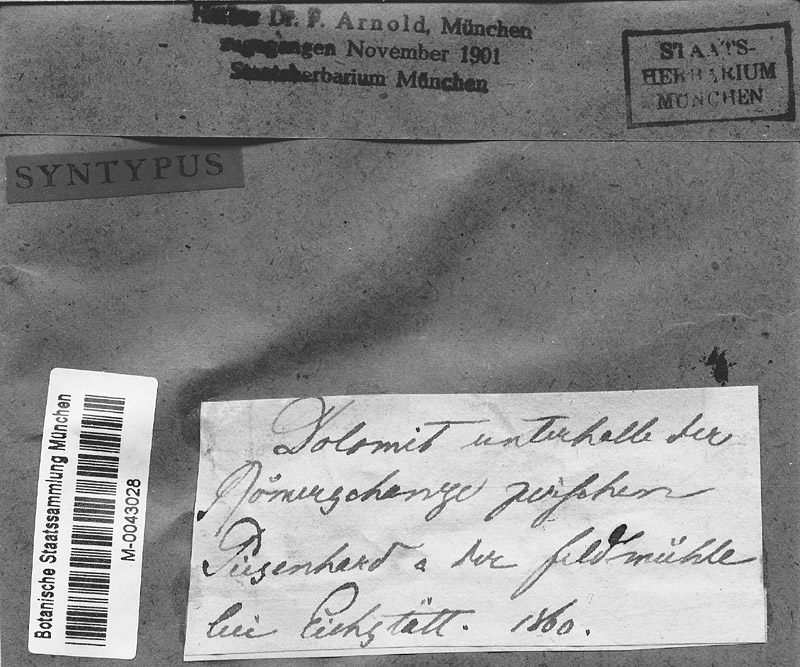 Dr. F. Arnold, München
zugegangen November 1901
Staatsherbarium München
STAATS-
HERBARIUM
MÜNCHEN
SYNTYPUS
Botanische Staatssammlung München
M-0043028
Dolomit unterhalb der
Römerschanze zwischen
Pizenhard & der Feldmühle
bei Eichstätt. 1860.